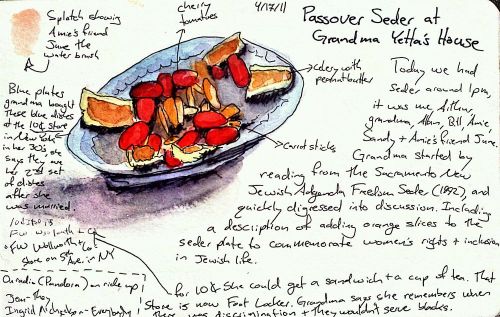 4/17/11
Passover Seder at
Grandma Yetta's House
Splotch showing
Amie's friend
June the
water brush
cherry
tomatoes
celery with
peanutbutter
Carrot sticks
Blue plates
grandma bought
These blue dishes
at the 10¢ store
in New York
in her 30's
She says they are
her 2nd set
of dishes
after she
was married.
Today we had
Seder around 1pm,
it was me, Arthur,
grandma, Alan, Bill, Amie
Sandy + Amie's friend June.
Grandma started by
reading from the Sacramento New
Jewish Agenda Freedom Seder (1992), and
quickly digressed into discussion. Including
a description of adding orange slices to the
seder plate to commemorate women's rights + inclusion
in Jewish life.
10¢ store is
FW Woolworth + Co
store on 5th Ave. in NY
for 10¢ she could get a sandwich + a cup of tea. That
Store is now Foot Locker. Grandma says she remembers when
there was discrimination + they wouldn't serve blacks.
(Pandora) on ride up
Ingrid Michaelson - Everybody